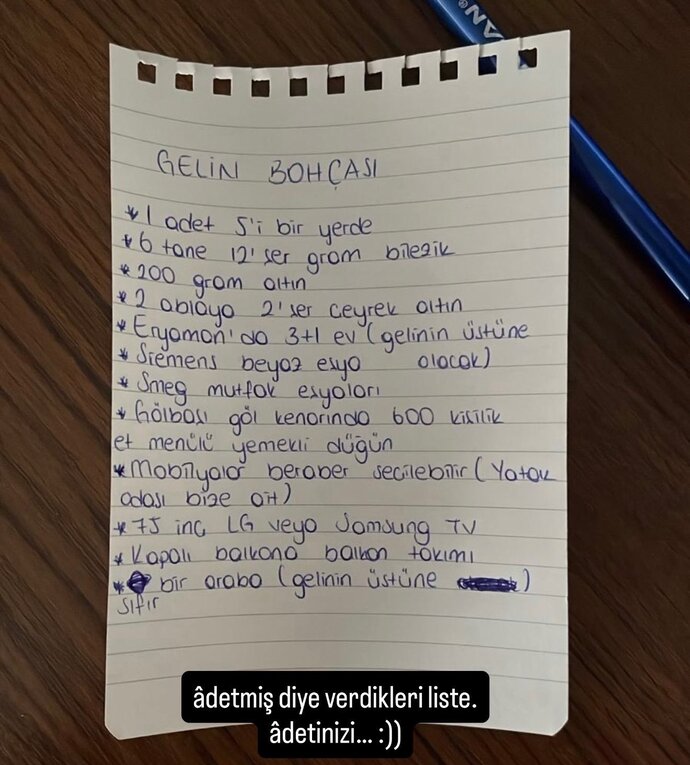 GELİN BOHÇASI
* 1 adet 5'i bir yerde
* 6 tane 12'şer gram bilezik
* 200 gram altın
* 2 ablaya 2'şer çeyrek altın
* Eryaman'da 3+1 ev (gelinin üstüne
* Siemens beyaz eşya olacak)
* Smeg mutfak eşyaları
* Gölbaşı göl kenarında 600 kişilik
et menülü yemekli düğün
* Mobilyalar beraber seçilebilir (Yatak
odası bize ait)
* 75 inç LG veya Samsung TV
* Kapalı balkona balkon takımı
* bir araba (gelinin üstüne )
sıfır
âdetmiş diye verdikleri liste.
âdetinizi... :))